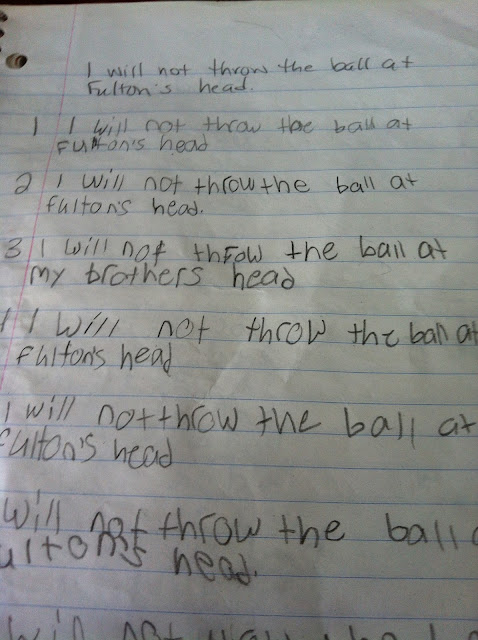 I will not throw the ball at
Fulton's head.
1 I will not throw the ball at
Fulton's head
2 I will not throw the ball at
fulton's head.
3 I will not throw the ball at
my brothers head
1 I will not throw the ball at
fulton's head
I will not throw the ball at
fulton's head
will not throw the ball
ulton's head.
will not